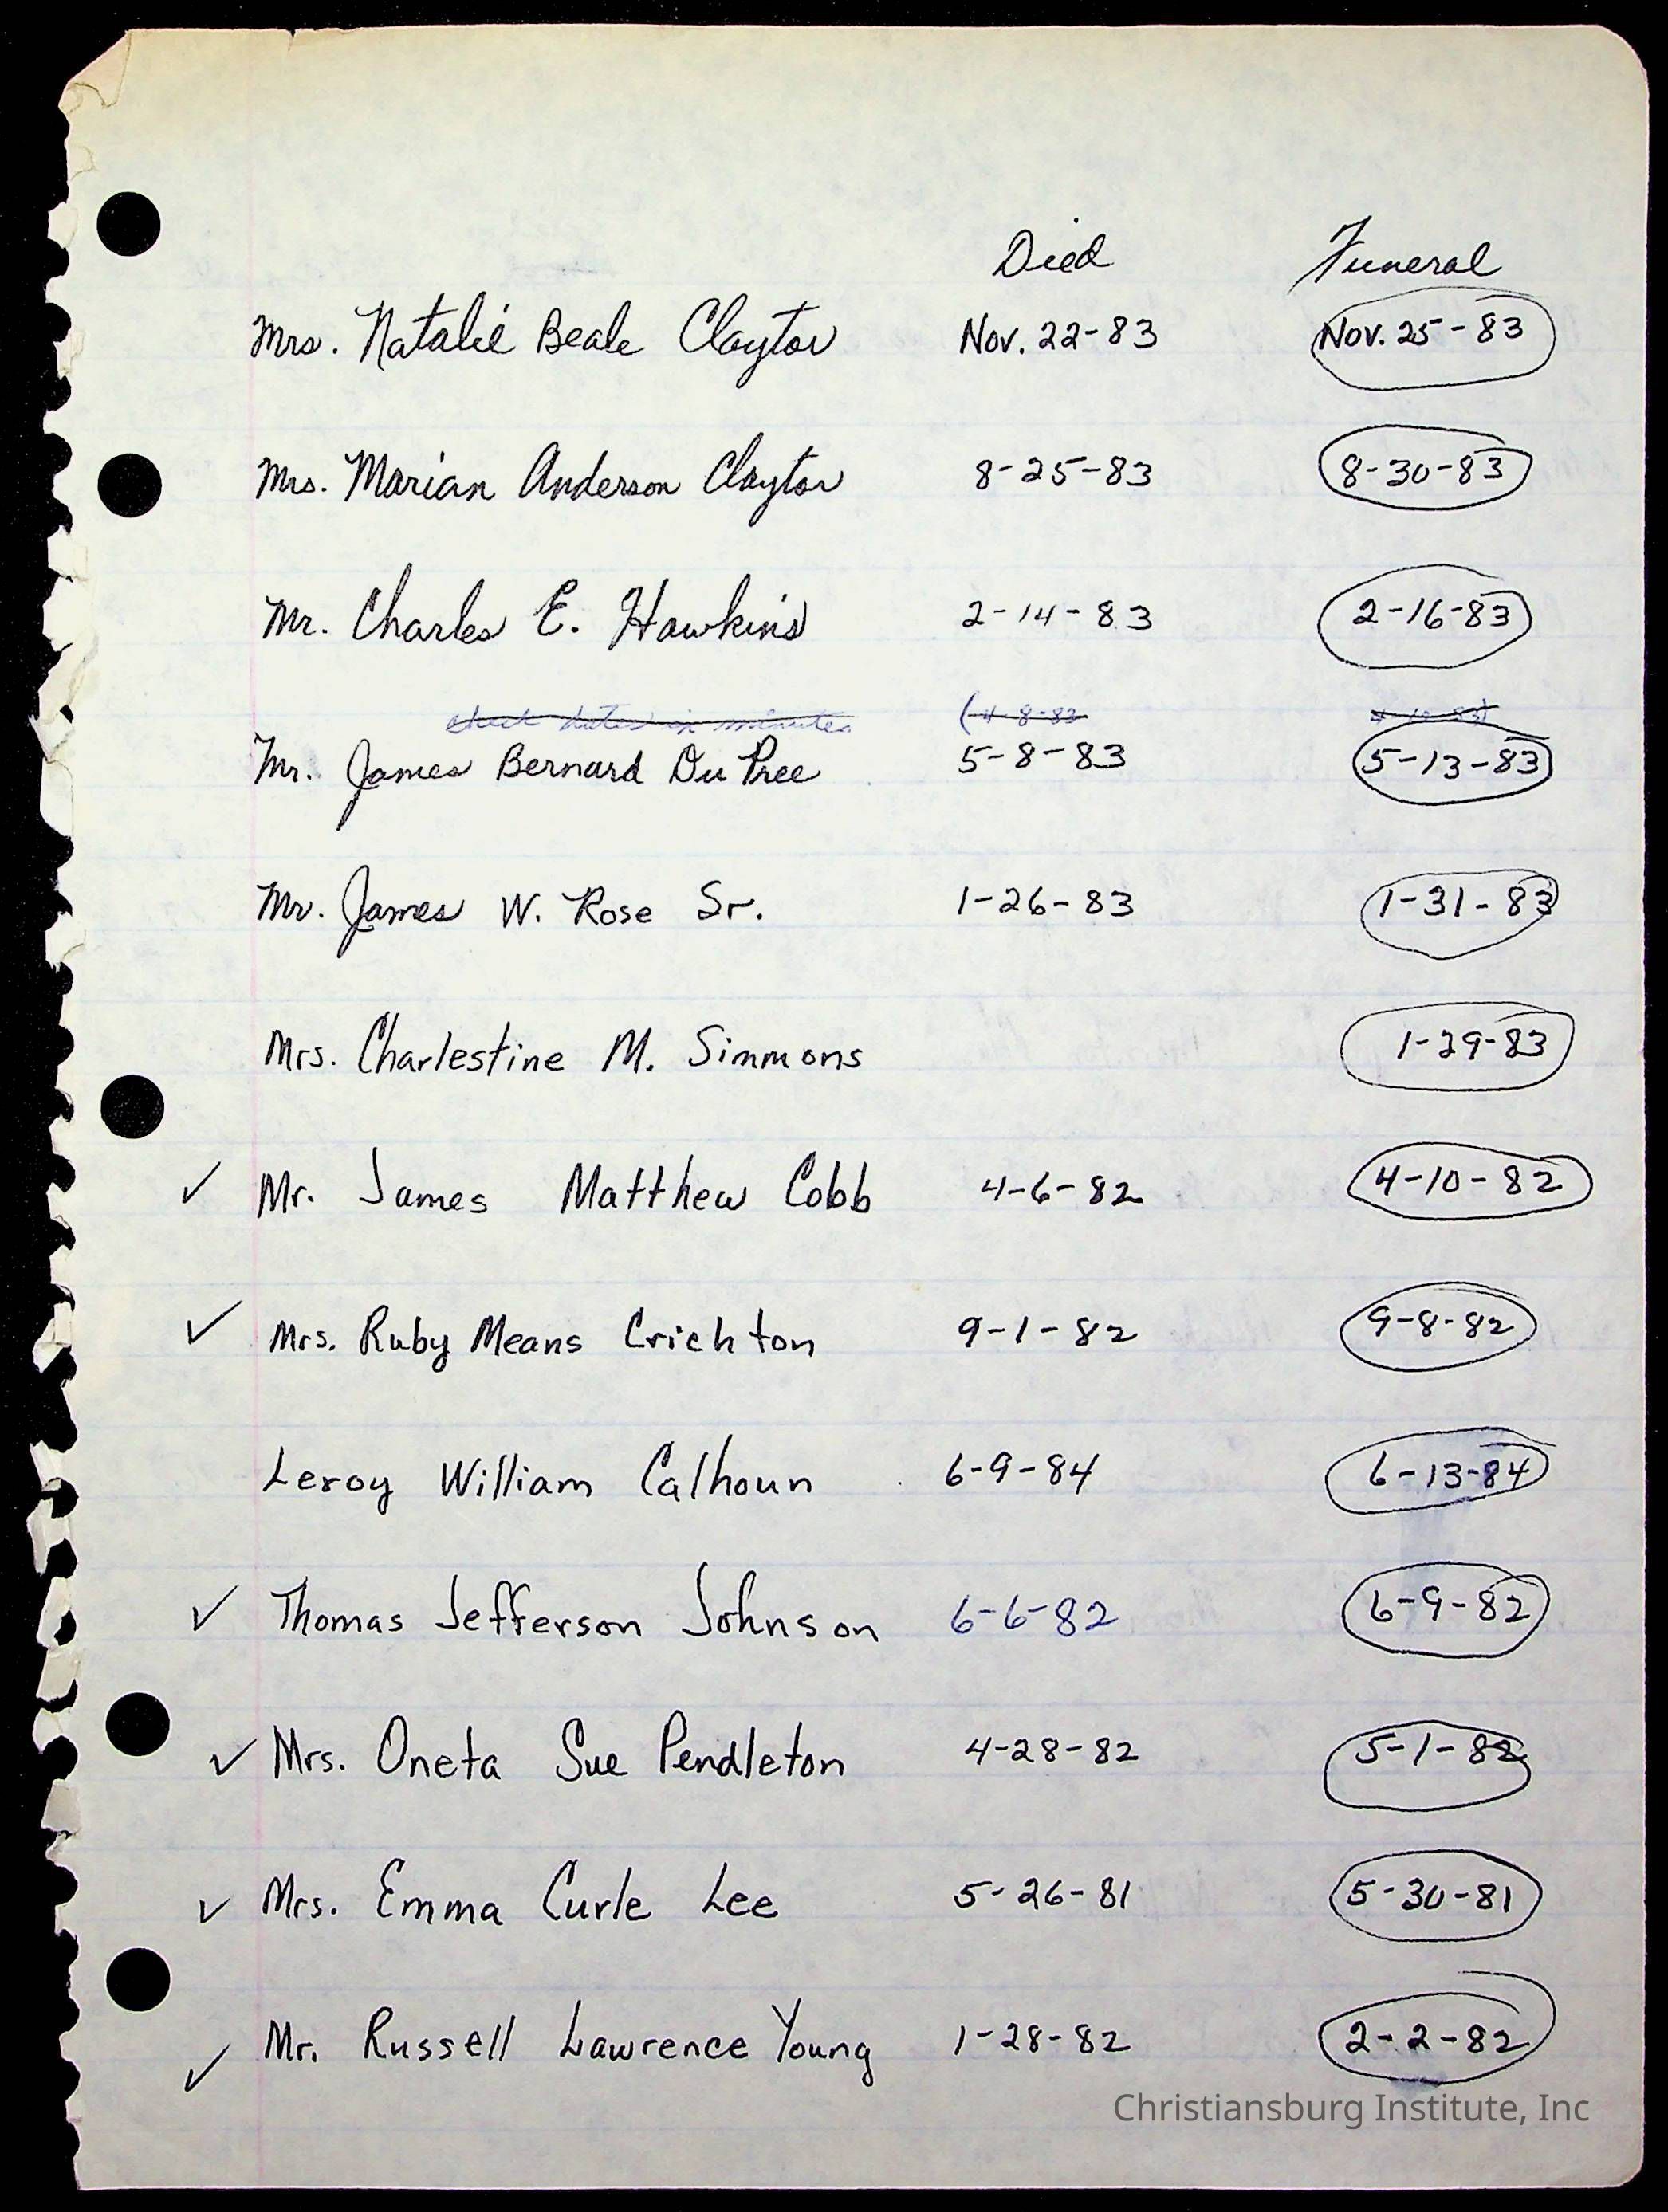 Died Funeral
Mrs. Natalie Beale Claytor Nov. 22-83 Nov. 25-83
Mrs. Marian Anderson Claytor 8-25-83 8-30-83
Mr. Charles E. Hawkins 2-14-83 2-16-83
check dates in minutes (4-8-83
Mr. James Bernard Du Pree 5-8-83 5-13-83
Mr. James W. Rose Sr. 1-26-83 1-31-83
Mrs. Charlestine M. Simmons 1-29-83
✓ Mr. James Matthew Cobb 4-6-82 4-10-82
✓ Mrs. Ruby Means Crichton 9-1-82 9-8-82
Leroy William Calhoun 6-9-84 6-13-84
✓ Thomas Jefferson Johnson 6-6-82 6-9-82
✓ Mrs. Oneta Sue Pendleton 4-28-82 5-1-82
✓ Mrs. Emma Curle Lee 5-26-81 5-30-81
✓ Mr. Russell Lawrence Young 1-28-82 2-2-82
Christiansburg Institute, Inc